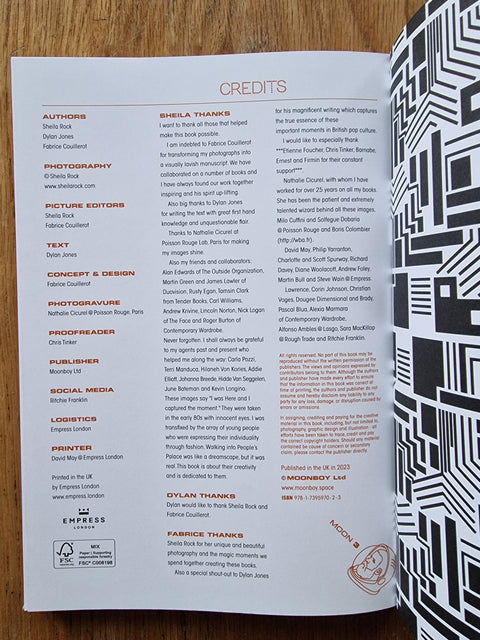 CREDITS
AUTHORS
Sheila Rock
Dylan Jones
Fabrice Couillerot
PHOTOGRAPHY
© Sheila Rock
www.sheilarock.com
PICTURE EDITORS
Sheila Rock
Fabrice Couillerot
TEXT
Dylan Jones
CONCEPT & DESIGN
Fabrice Couillerot
PHOTOGRAVURE
Nathalie Cicurel @ Poisson Rouge, Paris
PROOFREADER
Chris Tinker
PUBLISHER
Moonboy Ltd
SOCIAL MEDIA
Ritchie Franklin
LOGISTICS
Empress London
PRINTER
David May @ Empress London
Printed in the UK
by Empress London
www.empress.london
EMPRESS
LONDON
FSC
www.fsc.org
MIX
Paper | Supporting
responsible forestry
FSC® C008198
SHEILA THANKS
I want to thank all those that helped
make this book possible.
I am indebted to Fabrice Couillerot
for transforming my photographs into
a visually lavish manuscript. We have
collaborated on a number of books and
I have always found our work together
inspiring and his spirit up-lifting.
Also big thanks to Dylan Jones
for writing the text with great first hand
knowledge and unquestionable flair.
Thanks to Nathalie Cicurel at
Poisson Rouge Lab, Paris for making
my images shine.
Also my friends and collaborators:
Alan Edwards of The Outside Organization,
Martin Green and James Lawler of
Duovision, Rusty Egan, Tamsin Clark
from Tender Books, Carl Williams,
Andrew Krivine, Lincoln Norton, Nick Logan
of The Face and Roger Burton of
Contemporary Wardrobe.
Never forgotten. I shall always be grateful
to my agents past and present who
helped me along the way: Carla Pozzi,
Terri Manduca, Hilaneh Von Kories, Addie
Elliott, Johanna Breede, Hidde Van Seggelen,
June Bateman and Kevin Langina.
These images say "I was Here and I
captured the moment." They were taken
in the early 80s with innocent eyes. I was
transfixed by the array of young people
who were expressing their individuality
through fashion. Walking into People's
Palace was like a dreamscape, but it was
real. This book is about their creativity
and is dedicated to them.
DYLAN THANKS
Dylan would like to thank Sheila Rock and
Fabrice Couillerot.
FABRICE THANKS
Sheila Rock for her unique and beautiful
photography and the magic moments we
spend together creating these books.
Also a special shout-out to Dylan Jones
for his magnificent writing which captures
the true essence of these
important moments in British pop culture.
I would like to especially thank
***Etienne Foucher, Chris Tinker, Barnabe,
Ernest and Firmin for their constant
support***.
Nathalie Cicurel, with whom I have
worked for over 25 years on all my books.
She has been the patient and extremely
talented wizard behind all these images,
Milo Cuffini and Solfegue Dobaria
@ Poisson Rouge and Boris Colombier
(http://wba.fr).
David May, Philip Yarranton,
Charlotte and Scott Spurway, Richard
Davey, Diane Woolacott, Andrew Foley,
Martin Bull and Steve Wain @ Empress.
Lawrence, Corin Johnson, Christian
Vages, Dougee Dimensional and Brady,
Pascal Blua, Alexia Marmara
of Contemporary Wardrobe,
Alfonso Ambles @ Lasgo, Sara MacKillop
@ Rough Trade and Ritchie Franklin.
All rights reserved. No part of this book may be
reproduced without the written permission of the
publishers. The views and opinions expressed by
contributors belong to them. Although the authors
and publisher have made every effort to ensure
that the information in this book was correct at
time of printing, the authors and publisher do not
assume and hereby disclaim any liability to any
party for any loss, damage, or disruption caused by
errors or omissions.
In assigning, crediting and paying for the creative
material in this book, including, but not limited to,
photography, graphic design and illustration - all
efforts have been taken to trace, credit and pay
the correct copyright holders. Should any material
contained be cause of concern or secondary
claim, please contact the publisher directly.
Published in the UK in 2023
©MOONBOY Ltd
www.moonboy.space
ISBN 978-1-7395970-2-3
MOON 3